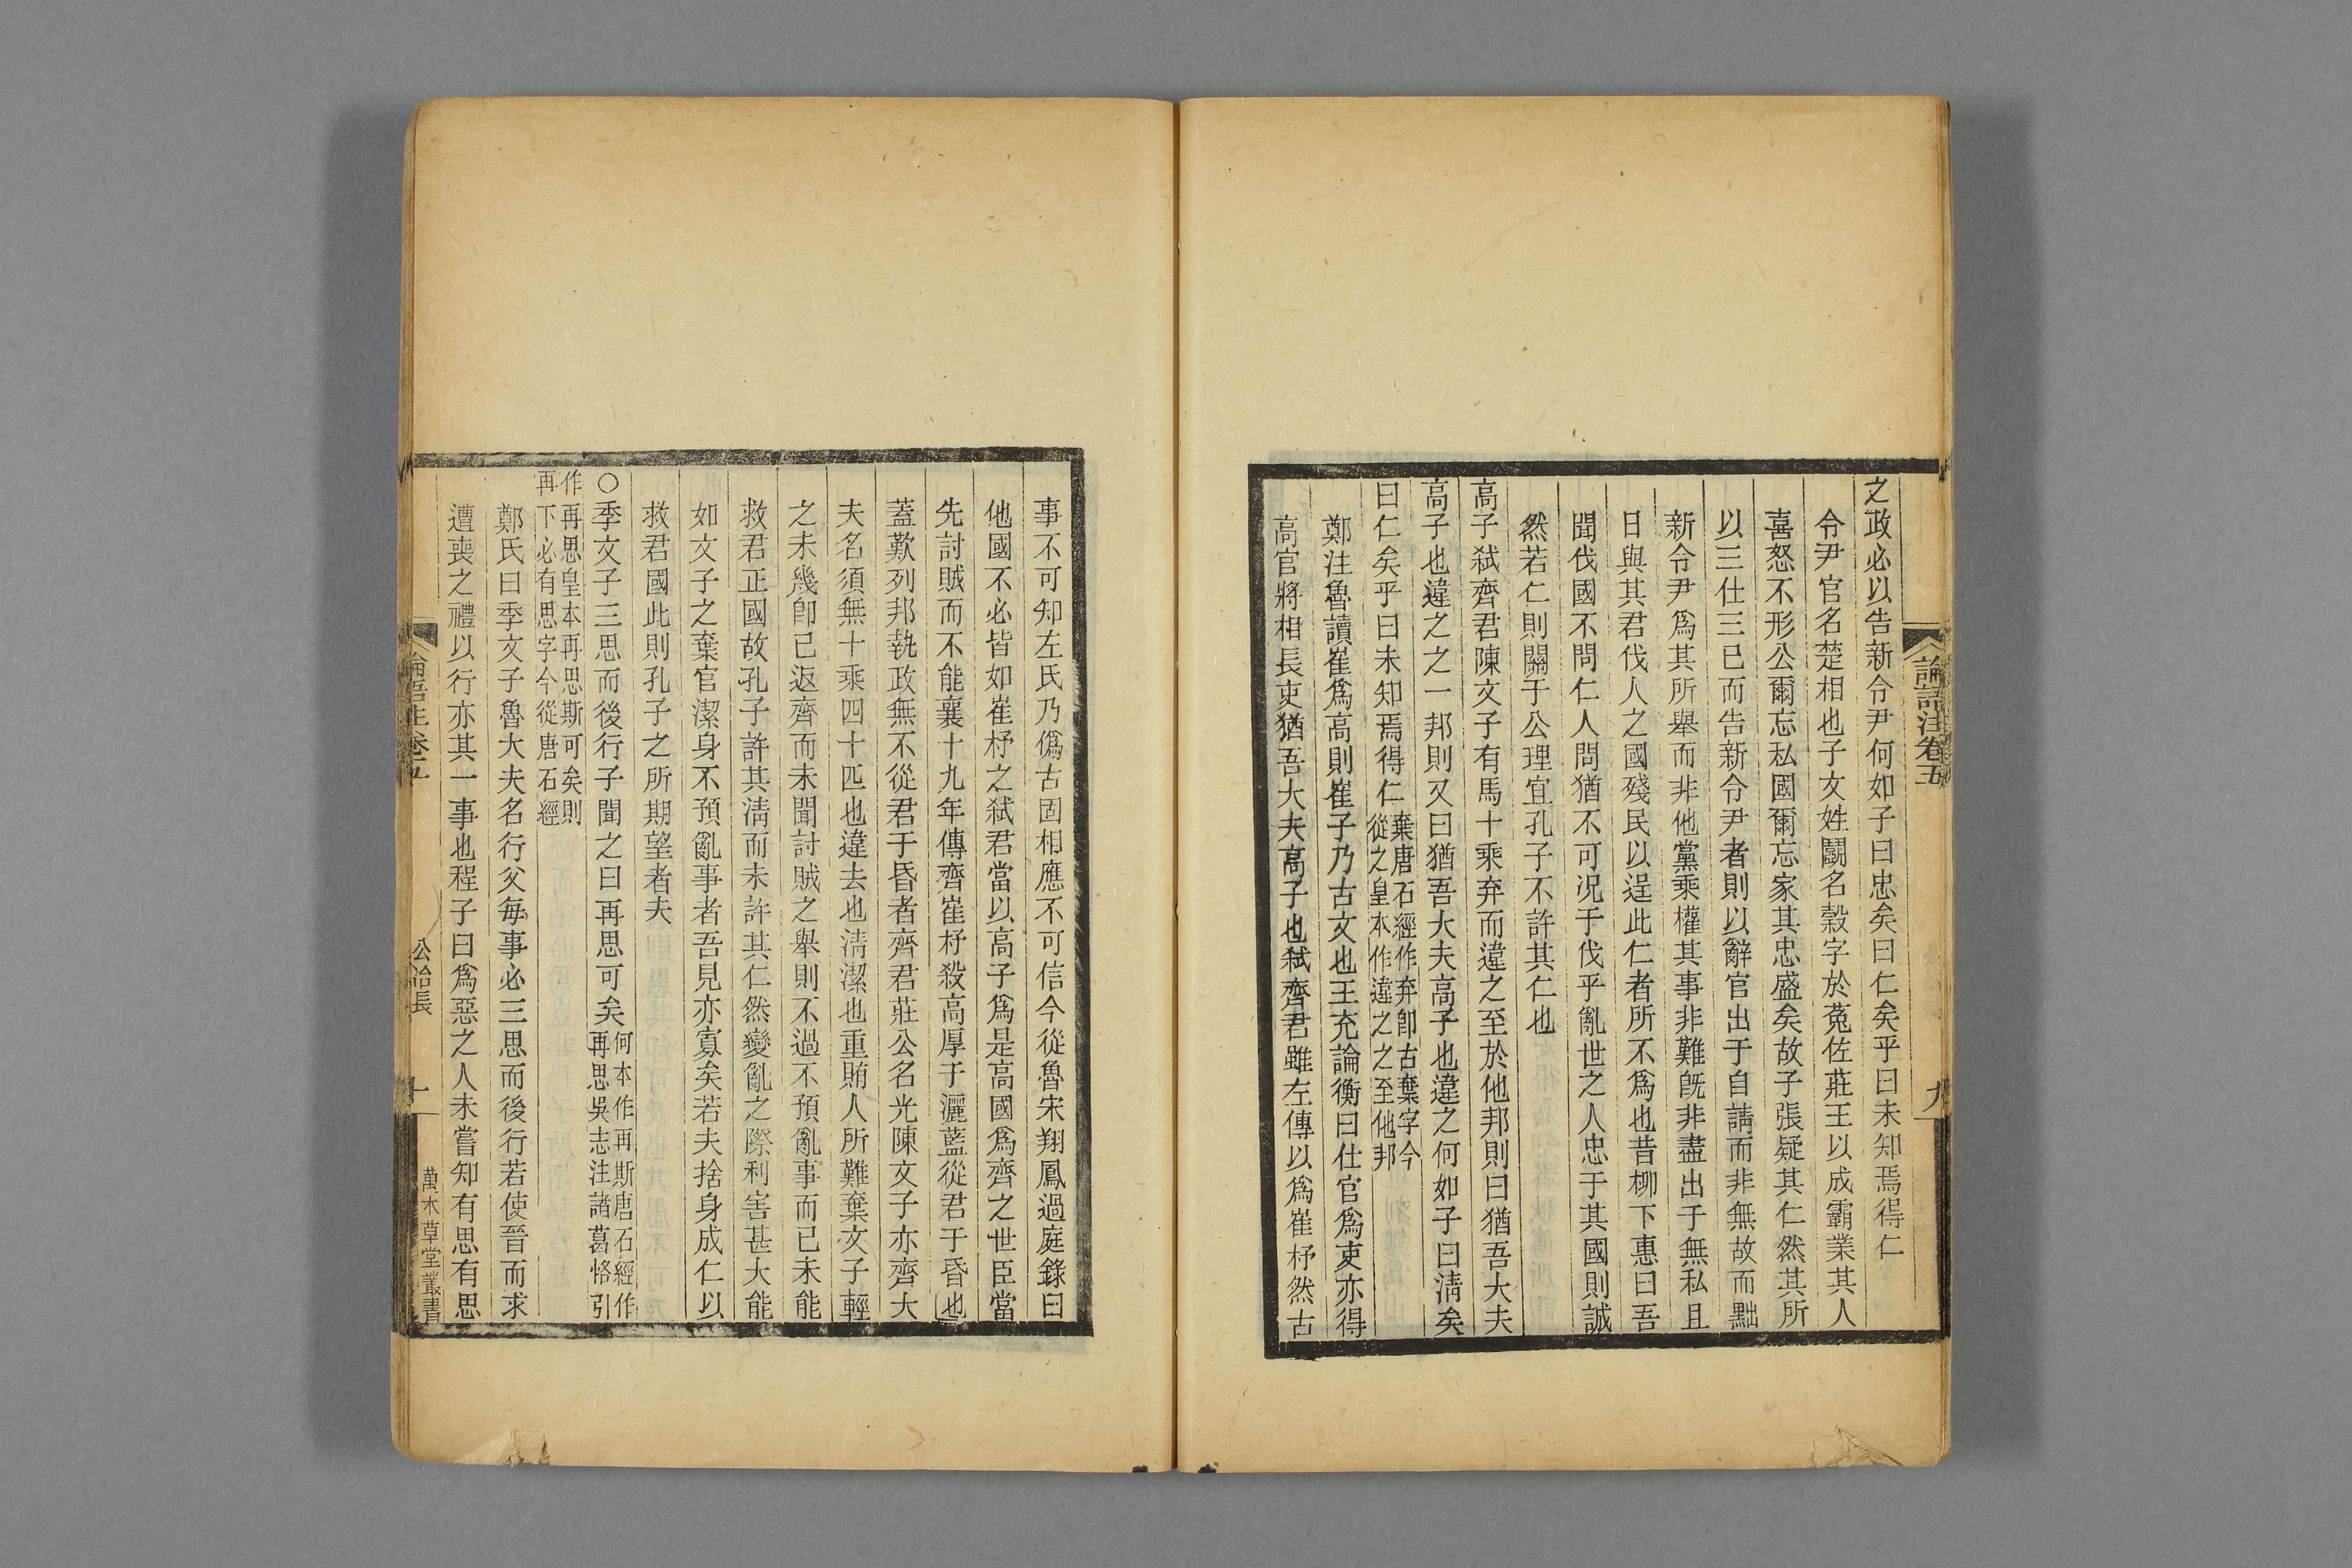 論語注卷五
九
之政必以告新令尹何如子曰忠矣曰仁矣乎曰未知焉得仁
令尹官名楚相也子文姓鬭名穀字於菟佐莊王以成霸業其人
喜怒不形公爾忘私國爾忘家其忠盛矣故子張疑其仁然其所
以三仕三已而告新令尹者則以辭官出于自請而非無故而黜
新令尹爲其所舉而非他黨乘權其事非難旣非盡出于無私且
日與其君伐人之國殘民以逞此仁者所不爲也昔柳下惠曰吾
聞伐國不問仁人問猶不可况于伐乎亂世之人忠于其國則誠
然若仁則關于公理宜孔子不許其仁也
高子弑齊君陳文子有馬十乘弃而違之至於他邦則曰猶吾大夫
高子也違之之一邦則又曰猶吾大夫高子也違之何如子曰淸矣
曰仁矣乎曰未知焉得仁
棄唐石經作弃卽古棄字今
從之皇本作違之之至他邦
鄭注魯讀崔爲高則崔子乃古文也王充論衡曰仕官爲吏亦得
高官將相長吏猶吾大夫高子也弑齊君雖左傳以爲崔杼然古
事不可知左氏乃僞古固相應不可信今從魯宋翔鳳過庭錄曰
他國不必皆如崔杼之弑君當以高子爲是高國爲齊之世臣當
先討賊而不能襄十九年傳齊崔杼殺高厚于灑藍從君于昏也
蓋歎列邦執政無不從君于昏者齊君莊公名光陳文子亦齊大
夫名須無十乘四十匹也違去也淸潔也重賄人所難棄文子輕
之未幾卽已返齊而未聞討賊之舉則不過不預亂事而已未能
救君正國故孔子許其淸而未許其仁然變亂之際利害甚大能
如文子之棄官潔身不預亂事者吾見亦寡矣若夫捨身成仁以
救君國此則孔子之所期望者夫
○季文子三思而後行子聞之曰再思可矣
何本作再斯唐石經作
再思吳志注諸葛恪引
作再思皇本再思斯可矣則
再下必有思字今從唐石經
鄭氏曰季文子魯大夫名行父每事必三思而後行若使晉而求
遭喪之禮以行亦其一事也程子曰爲惡之人未嘗知有思有思
論語注卷五
公冶長
十
萬木草堂叢書